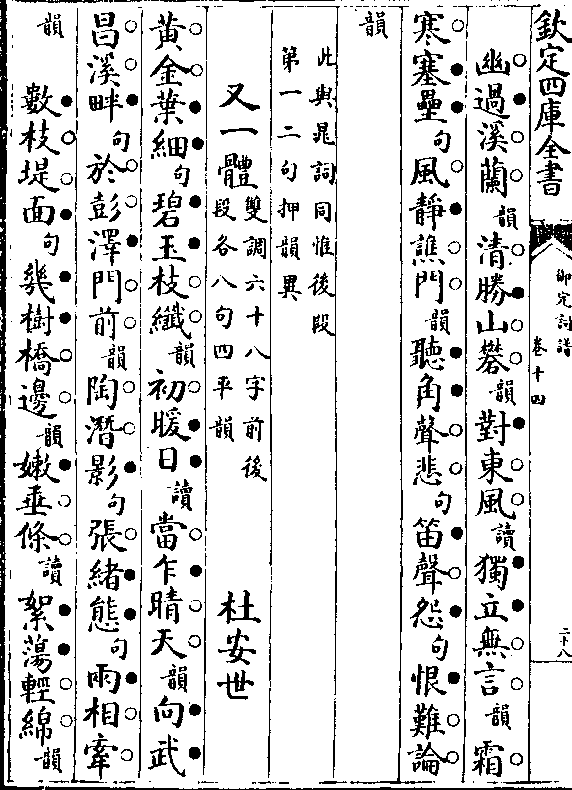 欽定四庫全書
御定詞譜
卷十四
二十八
幽過溪蘭韻清勝山礬韻對東風讀獨立無言韻霜
寒塞壘句風靜譙門韻聽角聲悲句笛聲怨句恨難論
韻
此與晁詞同惟後段
第一二句押韻異
又一體雙調六十八字前後
段各八句四平韻
杜安世
黃金葉細句碧玉枝纖韻初暖日讀當乍晴天韻向武
昌溪畔句於彭澤門前韻陶潛影句張緒態句兩相牽
韻
數枝堤面句幾樹橋邊韻嫩垂條讀絮蕩輕綿韻